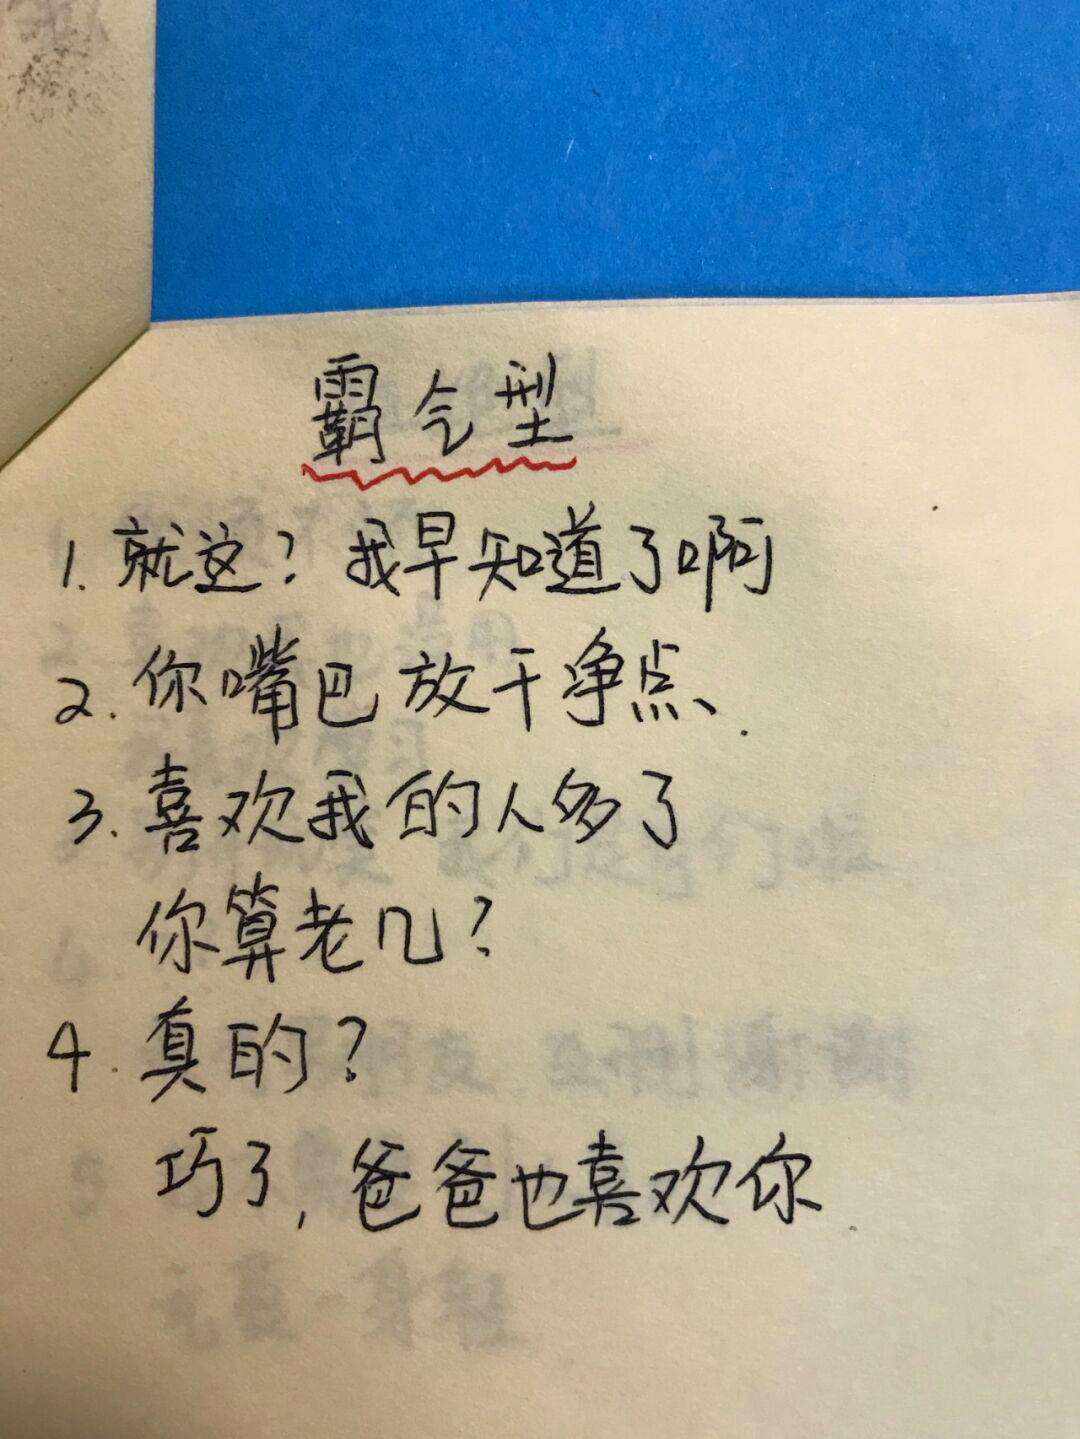 霸气型
1. 就这？我早知道了啊
2. 你嘴巴放干净点、
3. 喜欢我的人多了
你算老几？
4. 真的？
巧了，爸爸也喜欢你